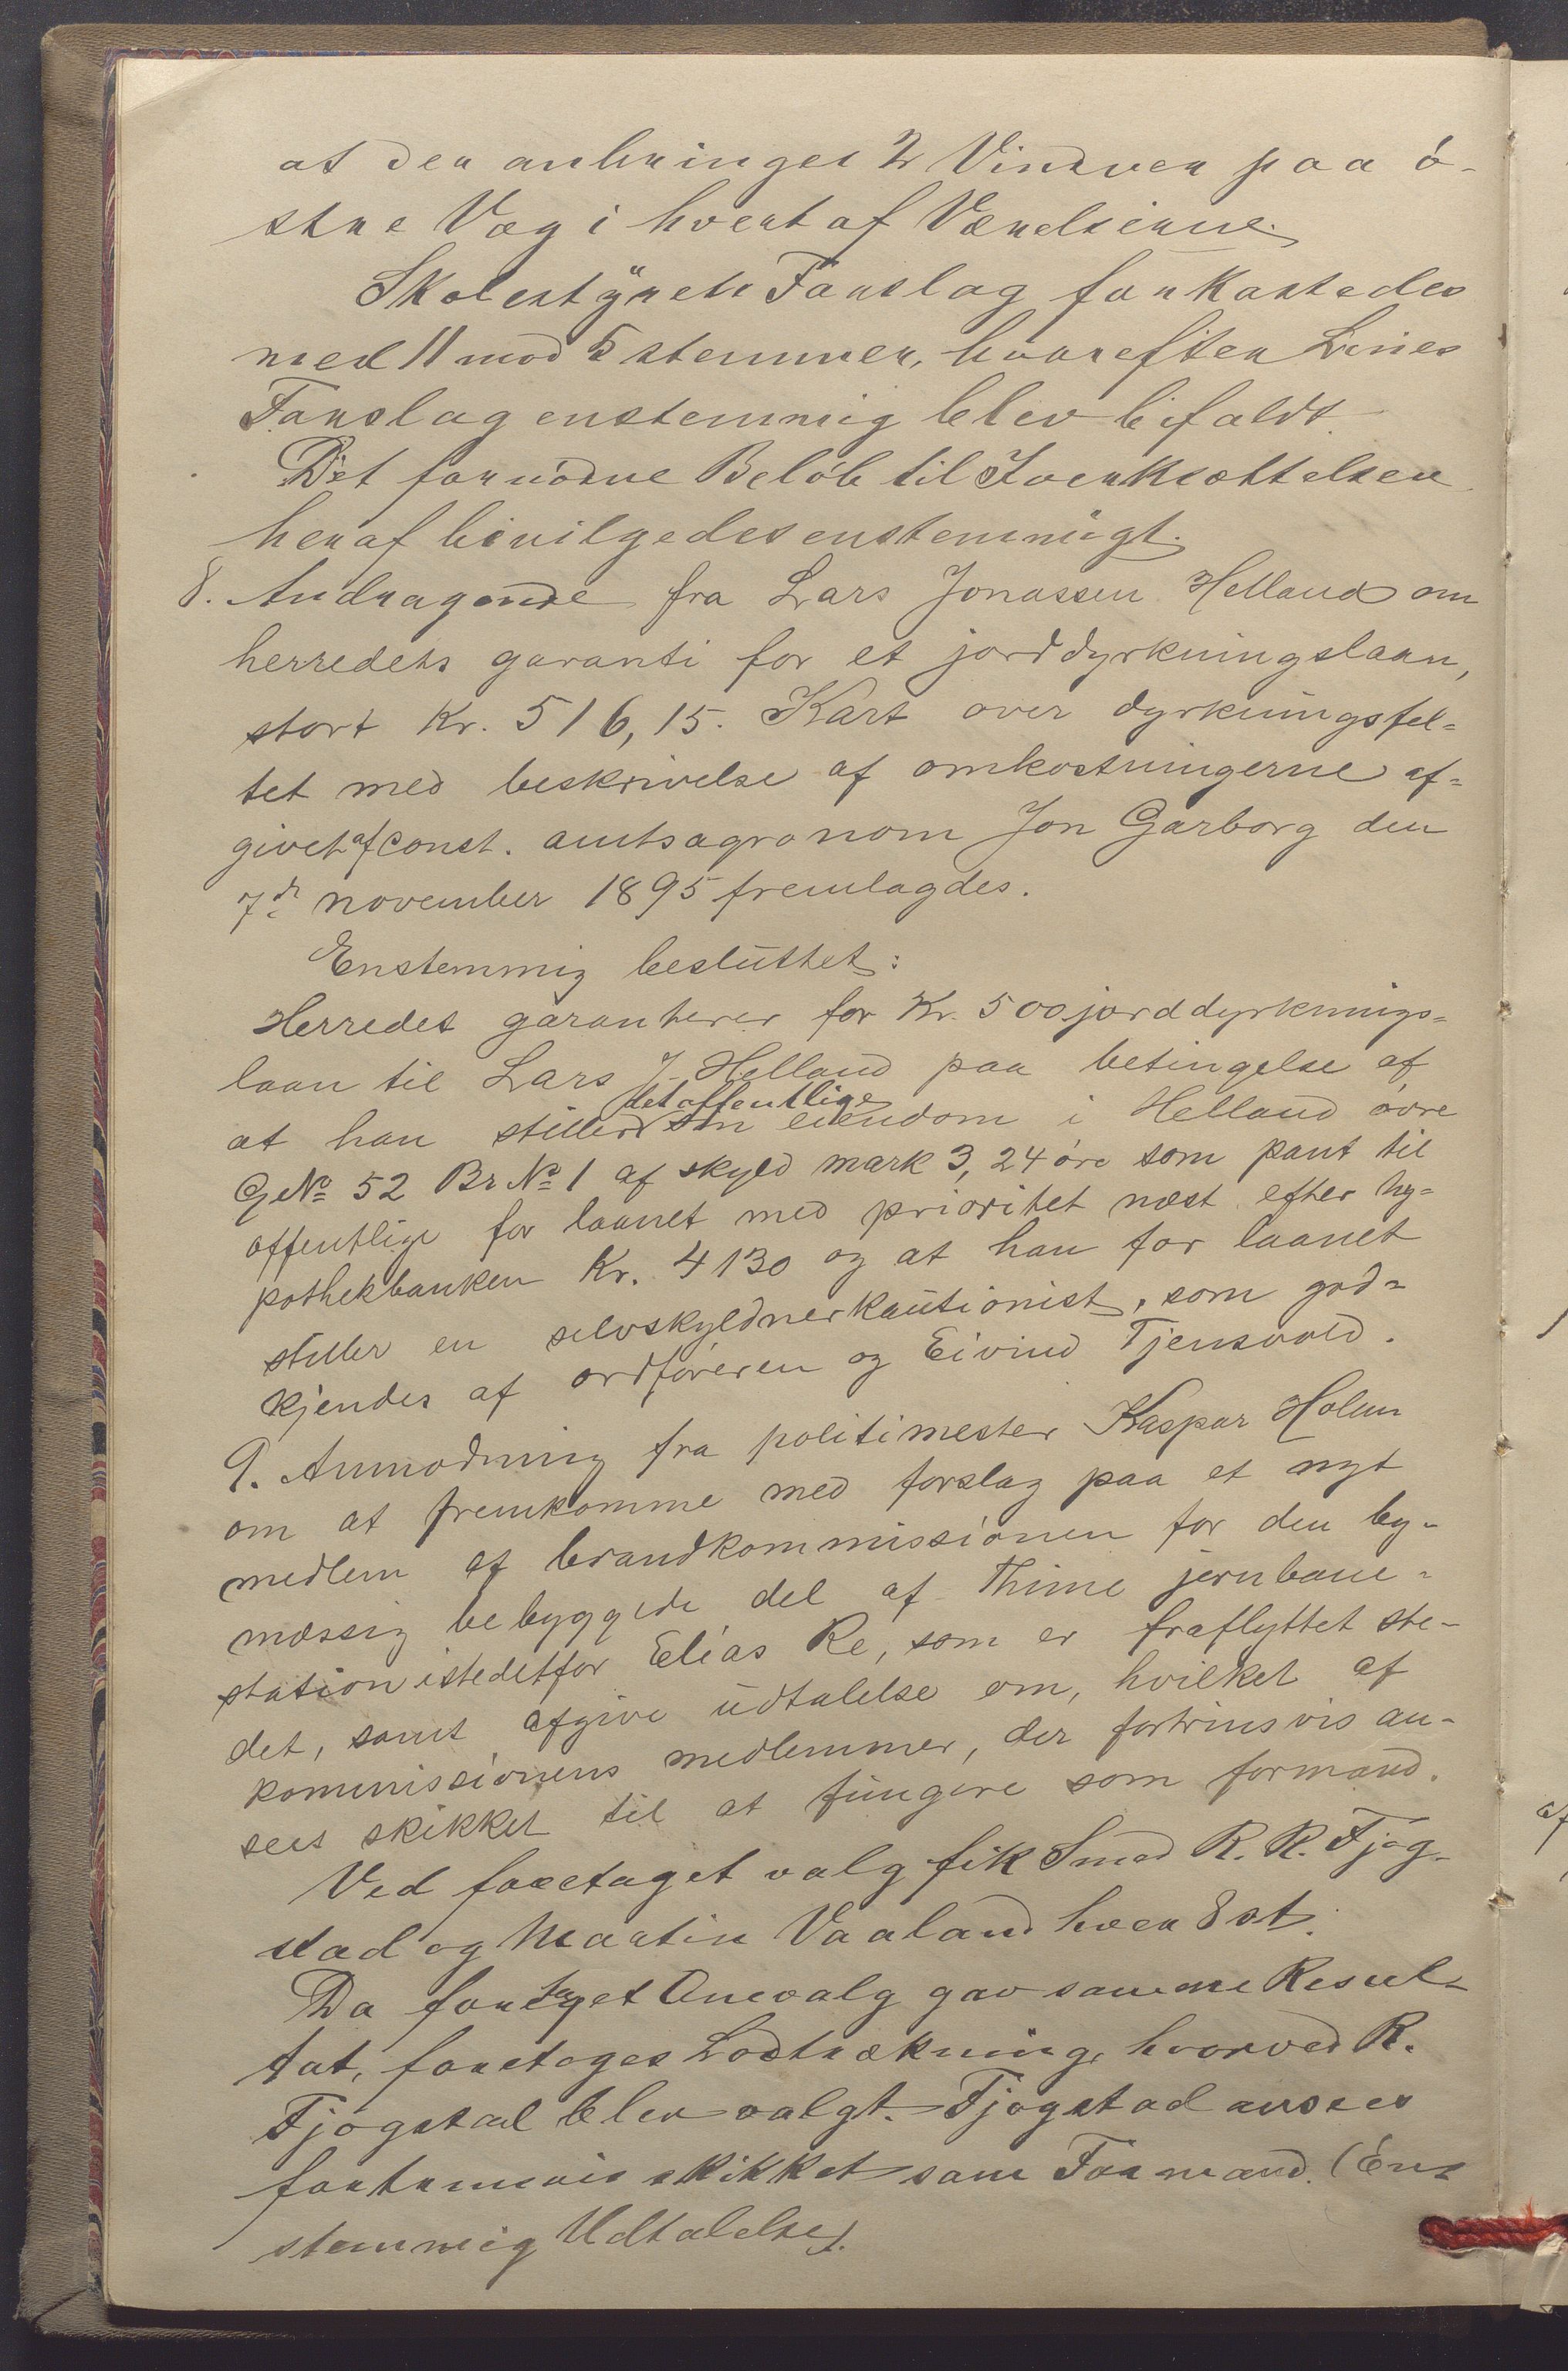 at der anbringes 2 Vinduer paa ö-
stre Væg i hvert af Værelserne.
Skolestÿrets Forslag forkastedes
med 11 mod 5 stemmer, hvorefter Lines
Forslag enstemmig blev bifaldt.
Det fornödne Belöb til Iverksættelsen
heraf bevilgedes enstemmigt.
8. Andragende fra Lars Jonassen Helland om
herredets garanti for et jorddyrkningslaan,
stort Kr. 516,15. Kart over dyrkningsfel=
tet med beskrivelse af omkostningerne af=
givet af const. amtsagronom Jon Garborg den
7de november 1895 fremlagdes.
Enstemmig besluttet:
Herredet garanterer for Kr. 500 jorddyrknings=
laan til Lars J. Helland paa betingelse af
det offentlige
at han stiller sin eiendom i Helland övre
G.No 52 Br No 1 af skyld mark 3,24 öre som pant til
offentlige for laanet med prioritet næst efter hy=
pothekbanken Kr. 4130 og at han for laanet
stiller en selvskyldnerkautionist, som god=
kjendes af ordföreren og Eivind Tjensvold.
9. Anmodning fra politimester Kaspar Holum
om at fremkomme med forslag paa et nyt
medlem af brandkommissionen for den by-
mæssig bebyggede del af Thime jernbane=
station istedetfor Elias Re, som er fraflyttet ste-
det, samt afgive udtalelse om, hvilket af
kommissionens medlemmer, der fortrinsvis an-
sees skikket til at fungere som formand.
Ved foretaget valg fik Smed R. R. Fjog-
stad og Martin Vaaland hver 8 st.
Da foretaget Omvalg gav samme Resul-
tat, foretoges Lodtrækning, hvorved R.
Fjogstad blev valgt. Fjogstad ansees
fortrinsvis skikket som Formand. (En-
stemmig Udtalelse).